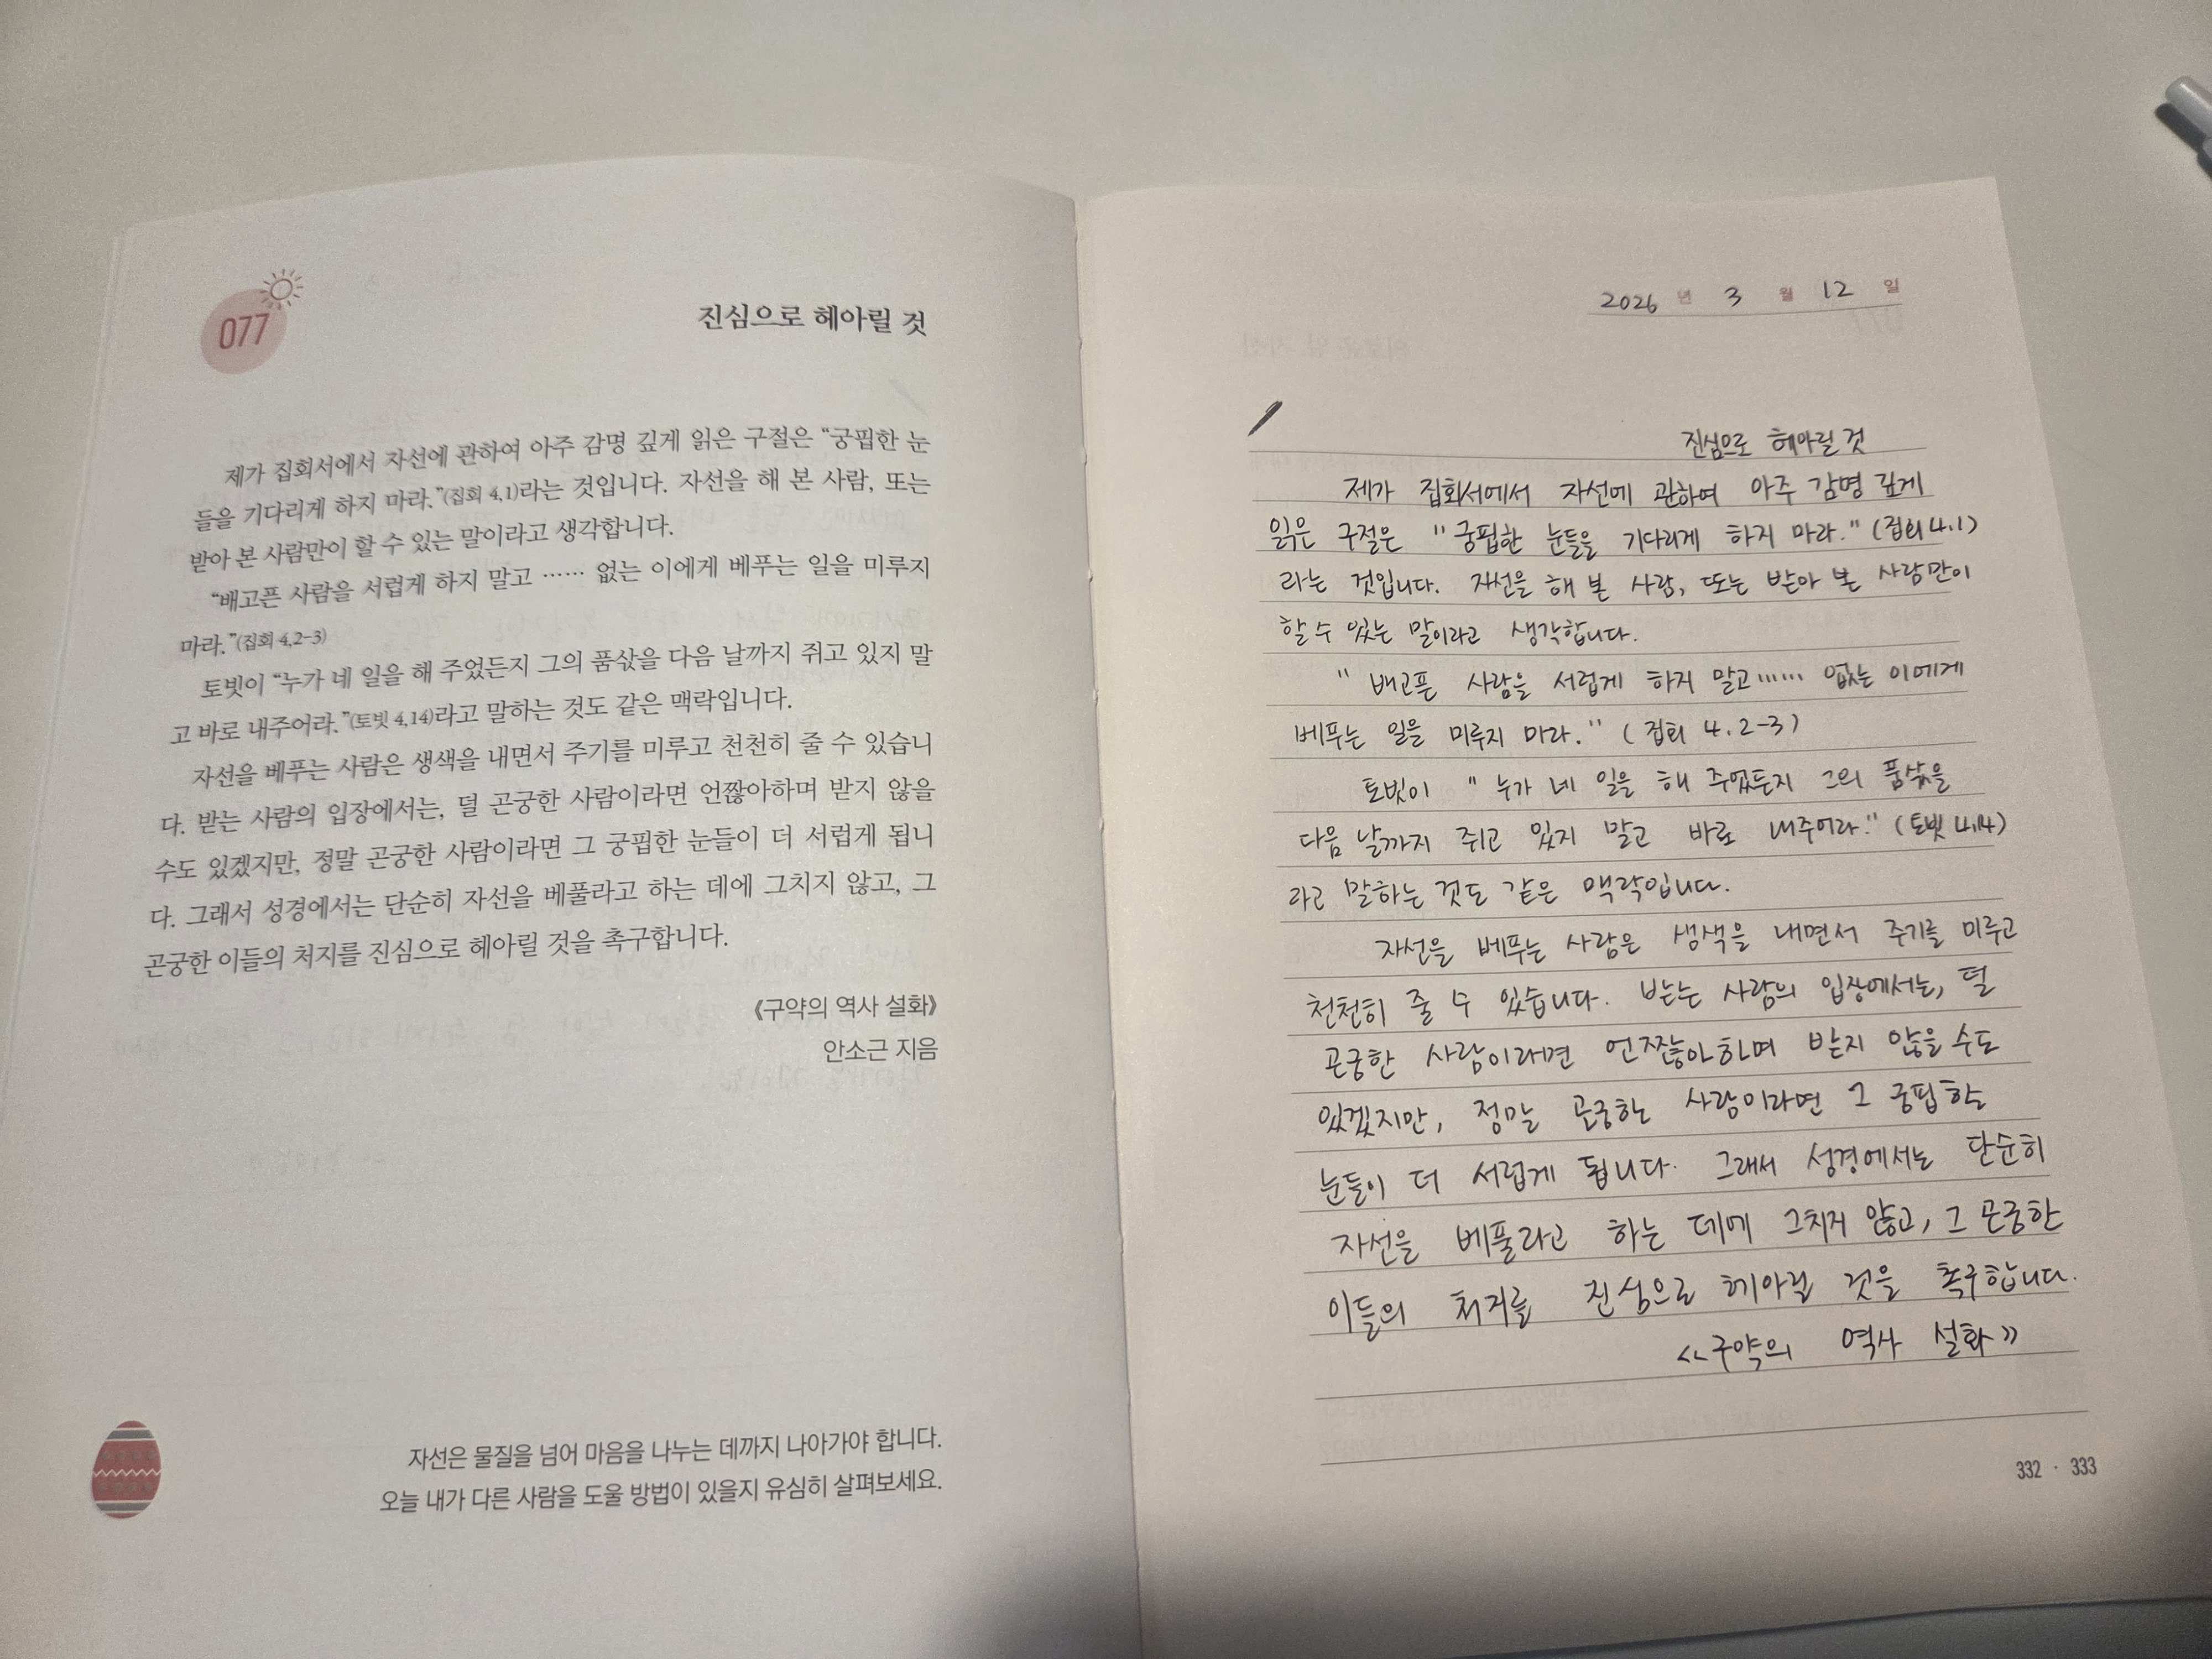 077
진심으로 헤아릴 것
제가 집회서에서 자선에 관하여 아주 감명 깊게 읽은 구절은 “궁핍한 눈
들을 기다리게 하지 마라.”(집회 4,1)라는 것입니다. 자선을 해 본 사람, 또는
받아 본 사람만이 할 수 있는 말이라고 생각합니다.
“배고픈 사람을 서럽게 하지 말고 …… 없는 이에게 베푸는 일을 미루지
마라.”(집회 4,2-3)
토빗이 “누가 네 일을 해 주었든지 그의 품삯을 다음 날까지 쥐고 있지 말
고 바로 내주어라.”(토빗 4,14)라고 말하는 것도 같은 맥락입니다.
자선을 베푸는 사람은 생색을 내면서 주기를 미루고 천천히 줄 수 있습니
다. 받는 사람의 입장에서는, 덜 곤궁한 사람이라면 언짢아하며 받지 않을
수도 있겠지만, 정말 곤궁한 사람이라면 그 궁핍한 눈들이 더 서럽게 됩니
다. 그래서 성경에서는 단순히 자선을 베풀라고 하는 데에 그치지 않고, 그
곤궁한 이들의 처지를 진심으로 헤아릴 것을 촉구합니다.
《구약의 역사 설화》
안소근 지음
자선은 물질을 넘어 마음을 나누는 데까지 나아가야 합니다.
오늘 내가 다른 사람을 도울 방법이 있을지 유심히 살펴보세요.
2026 년 3 월 12 일
진심으로 헤아릴 것
제가 집회서에서 자선에 관하여 아주 감명 깊게
읽은 구절은 "궁핍한 눈들을 기다리게 하지 마라." (집회 4.1)
라는 것입니다. 자선을 해 본 사람, 또는 받아 본 사람만이
할 수 있는 말이라고 생각합니다.
" 배고픈 사람을 서럽게 하지 말고…… 없는 이에게
베푸는 일을 미루지 마라." (집회 4.2-3)
토빗이 " 누가 네 일을 해 주었든지 그의 품삯을
다음 날까지 쥐고 있지 말고 바로 내주어라." (토빗 4.14)
라고 말하는 것도 같은 맥락입니다.
자선을 베푸는 사람은 생색을 내면서 주기를 미루고
천천히 줄 수 있습니다. 받는 사람의 입장에서는, 덜
곤궁한 사람이라면 언짢아하며 받지 않을 수도
있겠지만, 정말 곤궁한 사람이라면 그 궁핍한
눈들이 더 서럽게 됩니다. 그래서 성경에서는 단순히
자선을 베풀라고 하는 데에 그치지 않고, 그 곤궁한
이들의 처지를 진심으로 헤아릴 것을 촉구합니다.
<<구약의 역사 설화>>
332 · 333